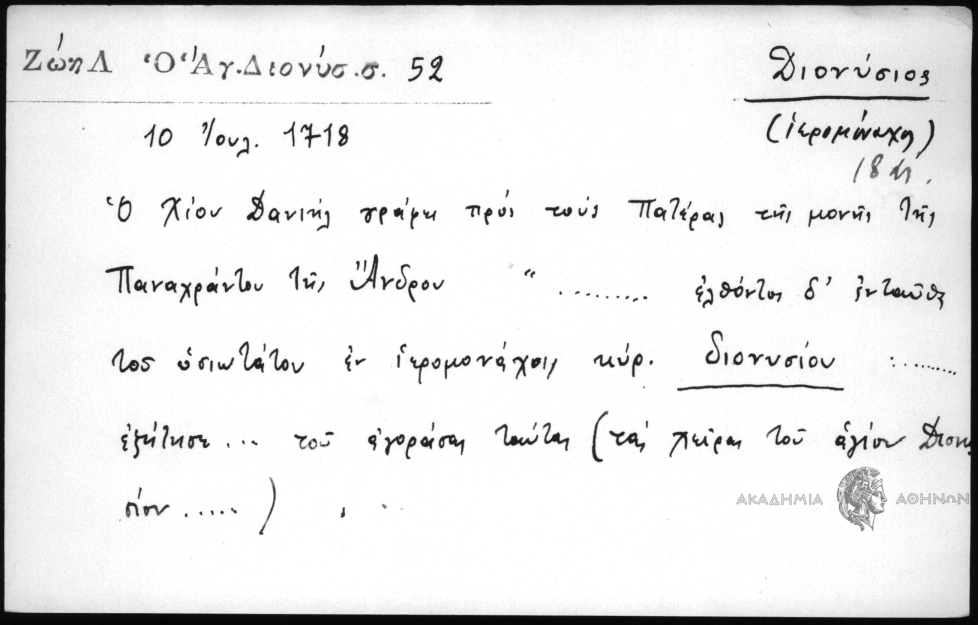 Ζώη Λ Ὁ Ἅγ. Διονύσ. σ. 52
Διονύσιος
(ἱερομόναχος)
10 Ἰουλ. 1718
Ὁ Χίου Δανιὴλ γράφει πρὸς τοὺς Πατέρας τῆς μονῆς τῆς
Παναχράντου τῆς Ἄνδρου " ......... ἐλθόντος δ' ἐνταῦθα
τοῦ ὁσιωτάτου ἐν ἱερομονάχοις κύρ. Διονυσίου .........
ἐζήτησε ... τοῦ ἀγοράσαι ταύτας (τὰς χεῖρας τοῦ ἁγίου Διονυ
σίου .....) .
ΑΚΑΔΗΜΙΑ ΑΘΗΝΩΝ